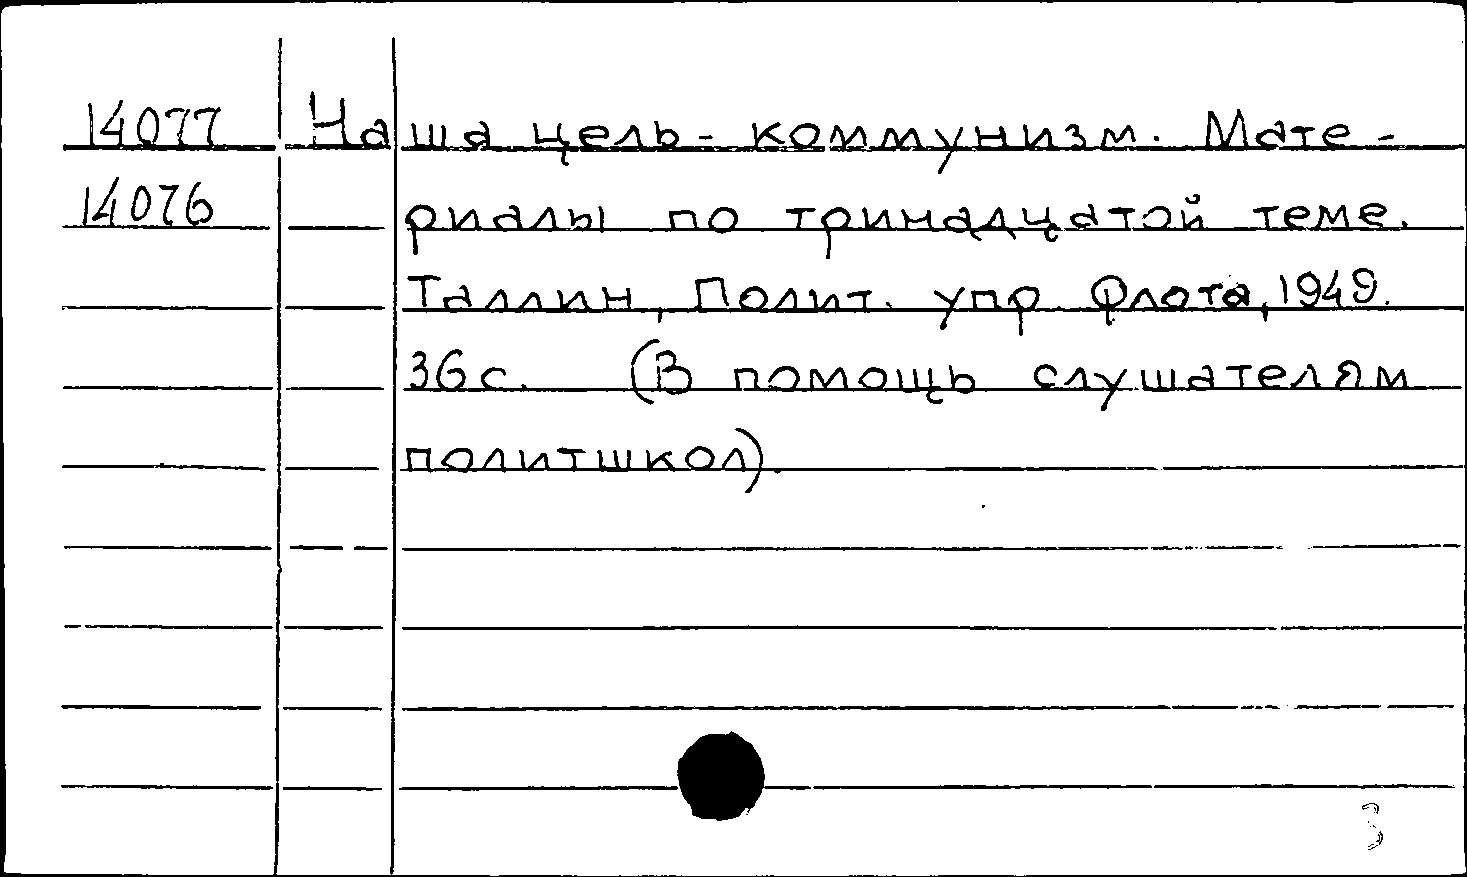 14077 Наша цель - коммунизм. Мате-
14076 риалы по тринадцатой теме.
Таллин, Полит. упр. Флота, 1949.
36 с. (В помощь слушателям
политшкол).
3